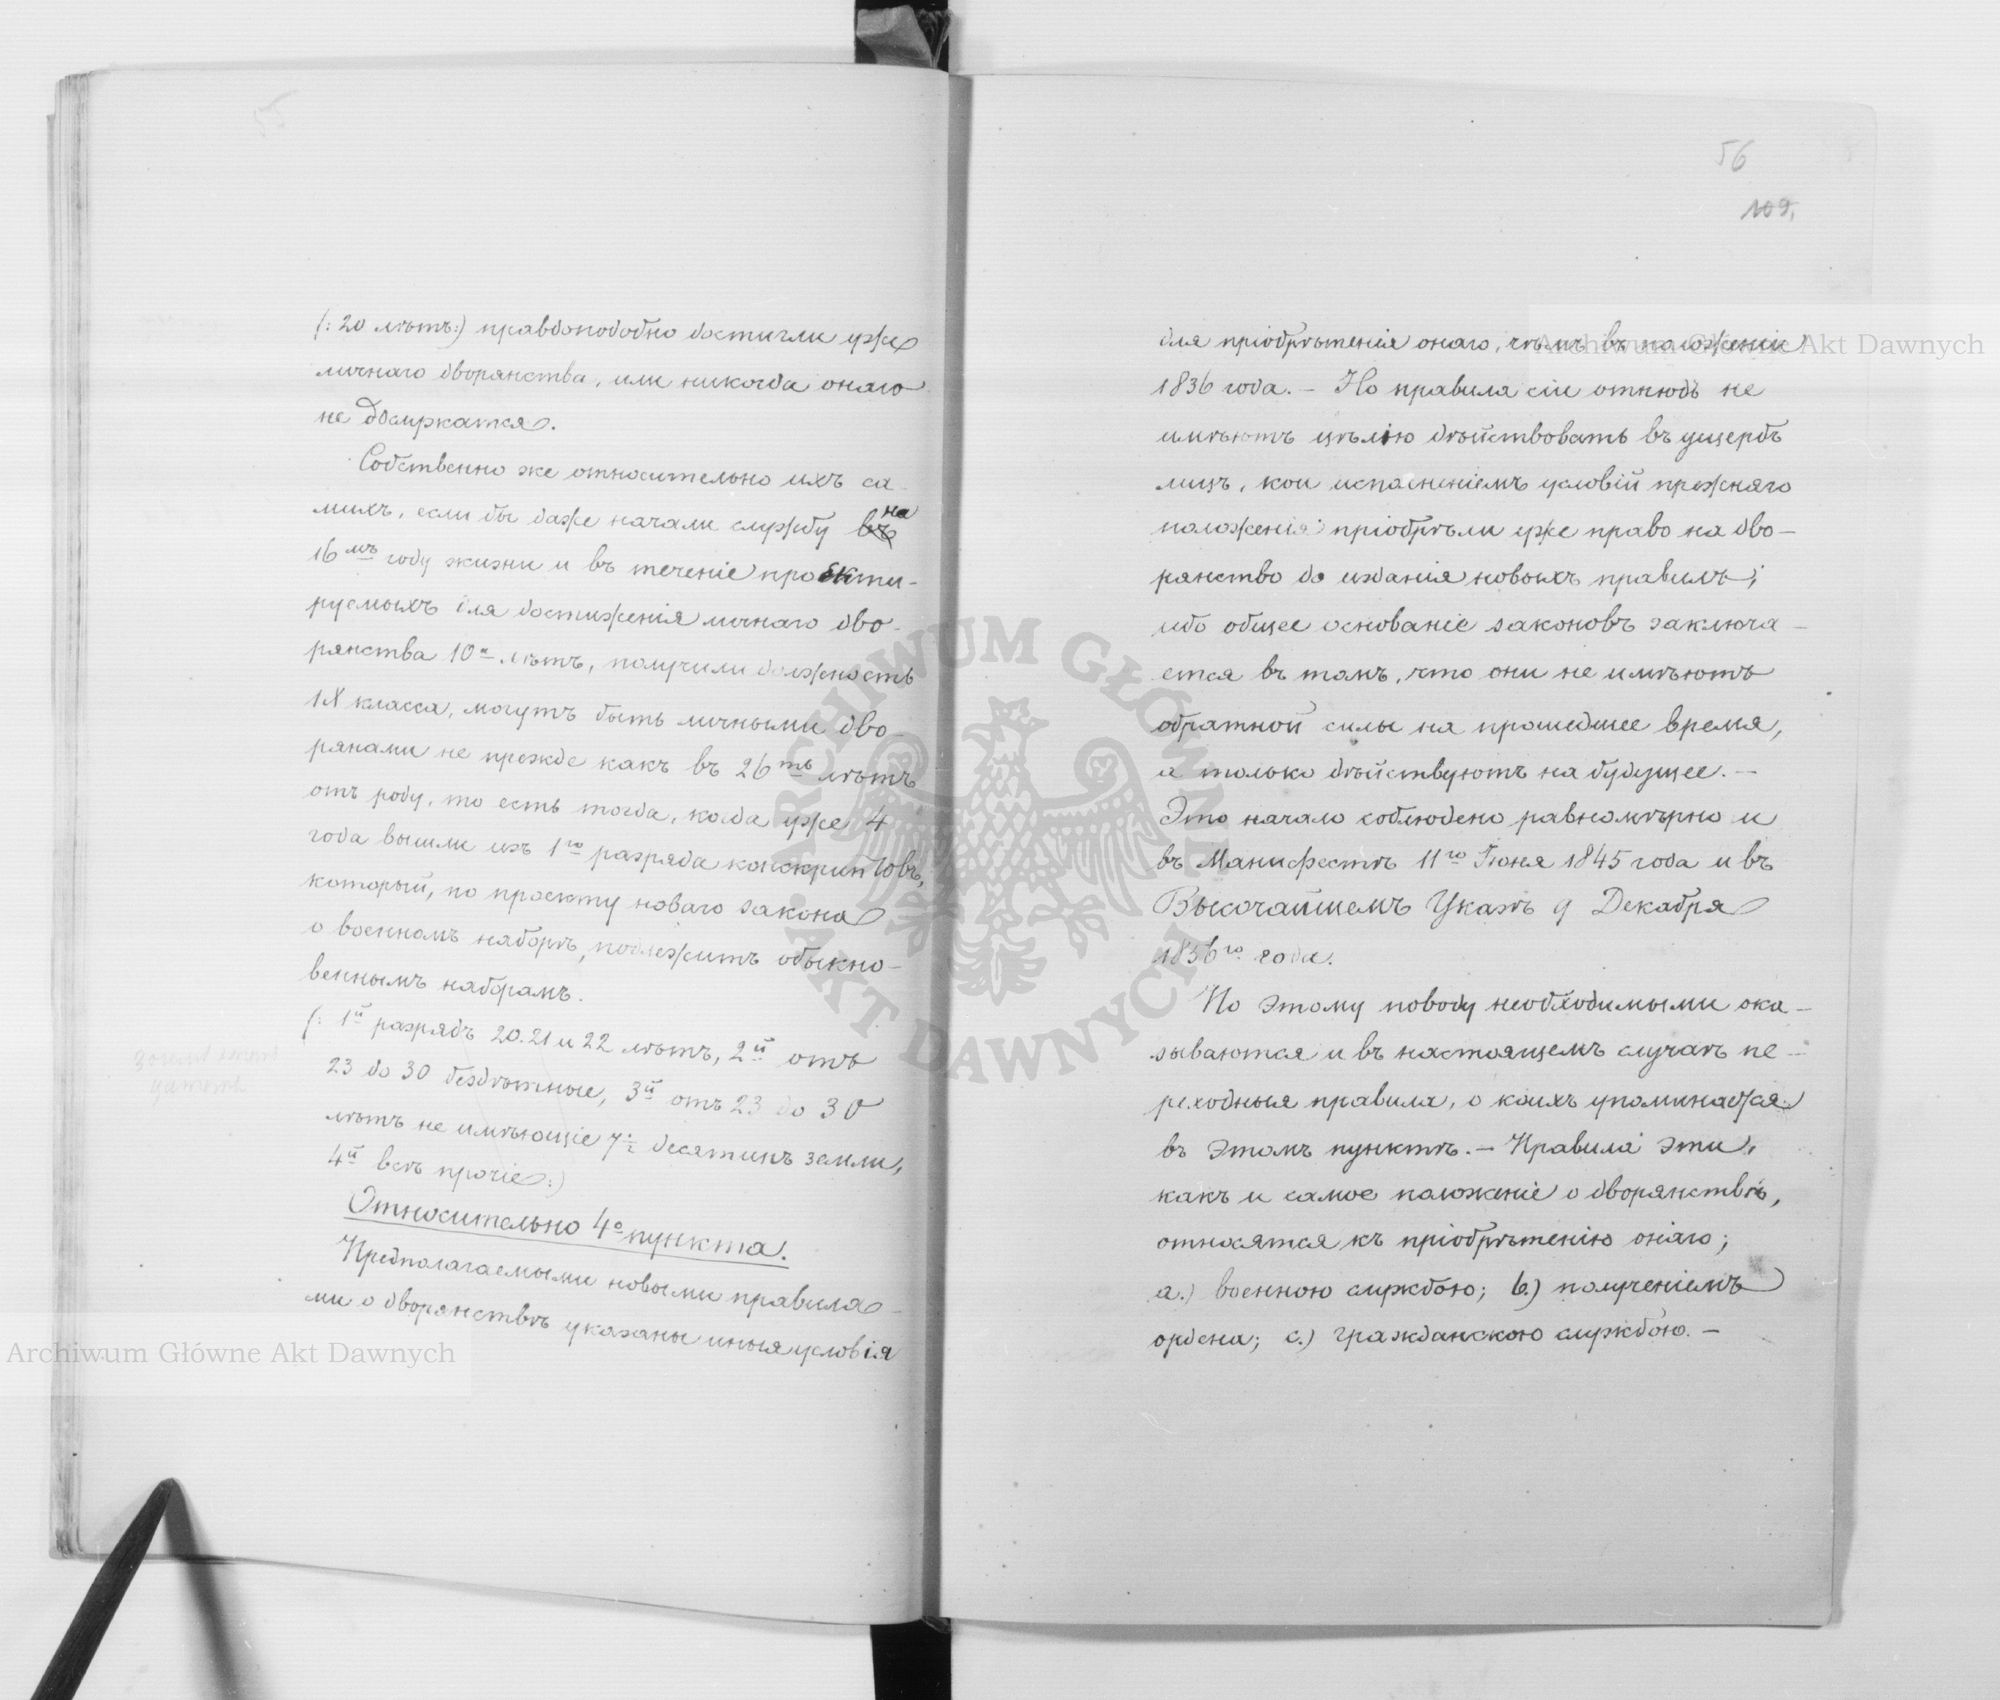 55
(: 20 лѣтъ:) правдоподобно достигли уже
личнаго дворянства, или никогда онаго
не дослужатся.
Собственно же относительно ихъ са-
михъ, если бы даже начали службу въ на
16мъ году жизни и въ теченіе проэкти-
руемыхъ для достиженія личнаго дво-
рянства 10и лѣтъ, получили должность
IX класса, могутъ быть личными дво-
рянами не прежде какъ въ 26ть лѣтъ
отъ роду, то есть тогда, когда уже 4
года вышли изъ 1го разряда конскриптовъ,
который, по проекту новаго закона
о военномъ наборѣ, подлежитъ обыкно-
веннымъ наборамъ.
(: 1й разрядъ 20. 21 и 22 лѣтъ, 2й отъ
23 до 30 бездѣтные, 3й отъ 23 до 30
лѣтъ не имѣющіе 7½ десятинъ земли,
4й всѣ прочіе:)
Относительно 4о пункта.
Предполагаемыми новыми правила-
ми о дворянствѣ указаны иныя условія
56
109,
для пріобрѣтенія онаго, чѣмъ въ положеніи
1836 года. – Но правила сіи отнюдь не
имѣютъ цѣлію дѣйствовать въ ущербъ
лицъ, кои исполненіемъ условій прежняго
положенія пріобрѣли уже право на дво-
рянство до изданія новыхъ правилъ;
ибо общее основаніе законовъ заключа-
ется въ томъ, что они не имѣютъ
обратной силы на прошедшее время,
а только дѣйствуютъ на будущее. –
Это начало соблюдено равномѣрно и
въ Манифестѣ 11го Іюня 1845 года и въ
Высочайшемъ Указѣ 9 Декабря
1856го года.
По этому поводу необходимыми ока-
зываются и въ настоящемъ случаѣ пе-
реходныя правила, о коихъ упоминается
въ этомъ пунктѣ. – Правила эти,
какъ и самое положеніе о дворянствѣ,
относятся къ пріобрѣтенію онаго;
a.) военною службою; b.) полученіемъ
ордена; c.) гражданскою службою. –
Archiwum Główne Akt Dawnych
Archiwum Główne Akt Dawnych
ARCHIWUM GŁÓWNE AKT DAWNYCH